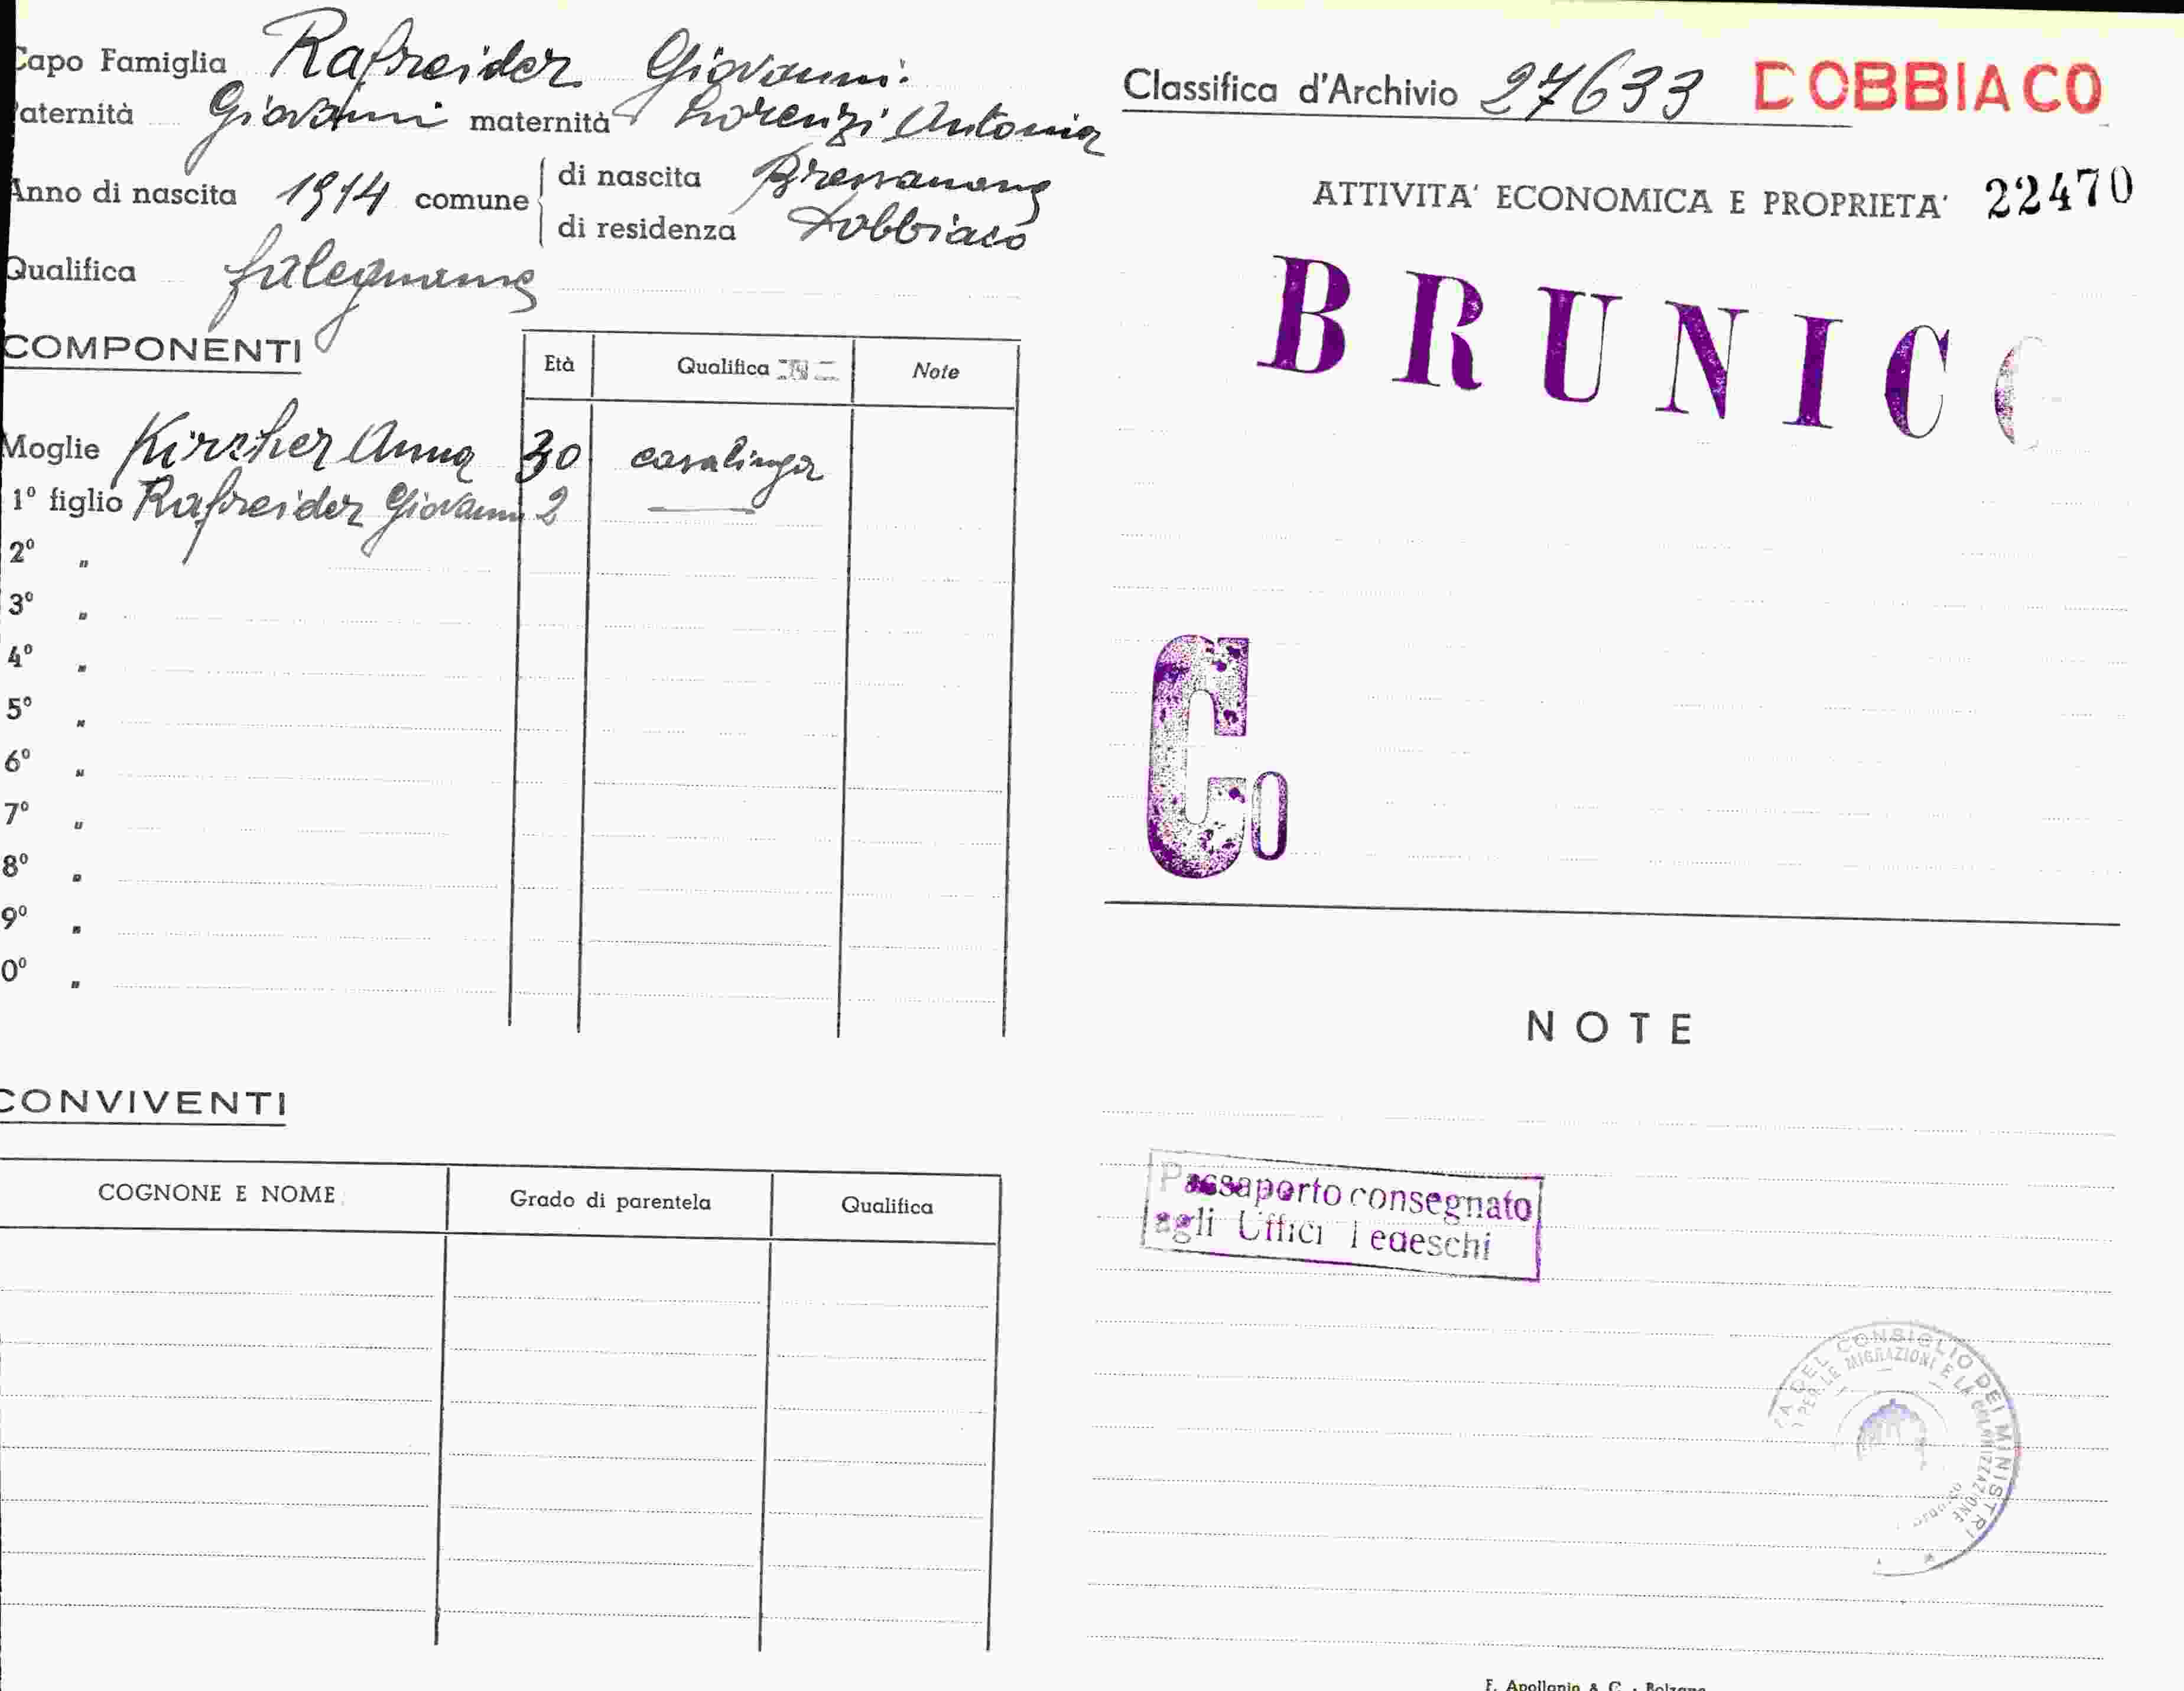 Capo Famiglia Rafreider Giovanni
Paternità Giovanni maternità Lorenzi Antonia
Anno di nascita 1914 comune di nascita Bressanone
di residenza Dobbiaco
Qualifica falegname
COMPONENTI
Età Qualifica Note
Moglie Kircher Anna 30 casalinga
1° figlio Rafreider Giovanni 2
2° "
3° "
4° "
5° "
6° "
7° "
8° "
9° "
0° "
CONVIVENTI
COGNONE E NOME Grado di parentela Qualifica
Classifica d'Archivio 27633 DOBBIACO
ATTIVITA' ECONOMICA E PROPRIETA' 22470
BRUNICO
Co
NOTE
Passaporto consegnato
agli Uffici Tedeschi
DEL CONSIGLIO DEI MINISTRI
PER LE MIGRAZIONI E LA COLONIZZAZIONE
F. Apollonio & C. - Bolzano